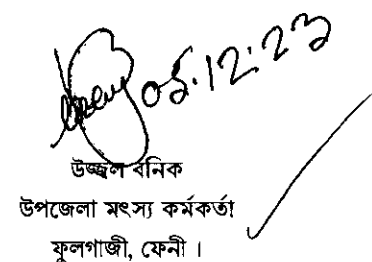 05.12.23
উজ্জ্বল বনিক
উপজেলা মৎস্য কর্মকর্তা
ফুলগাজী, ফেনী ।